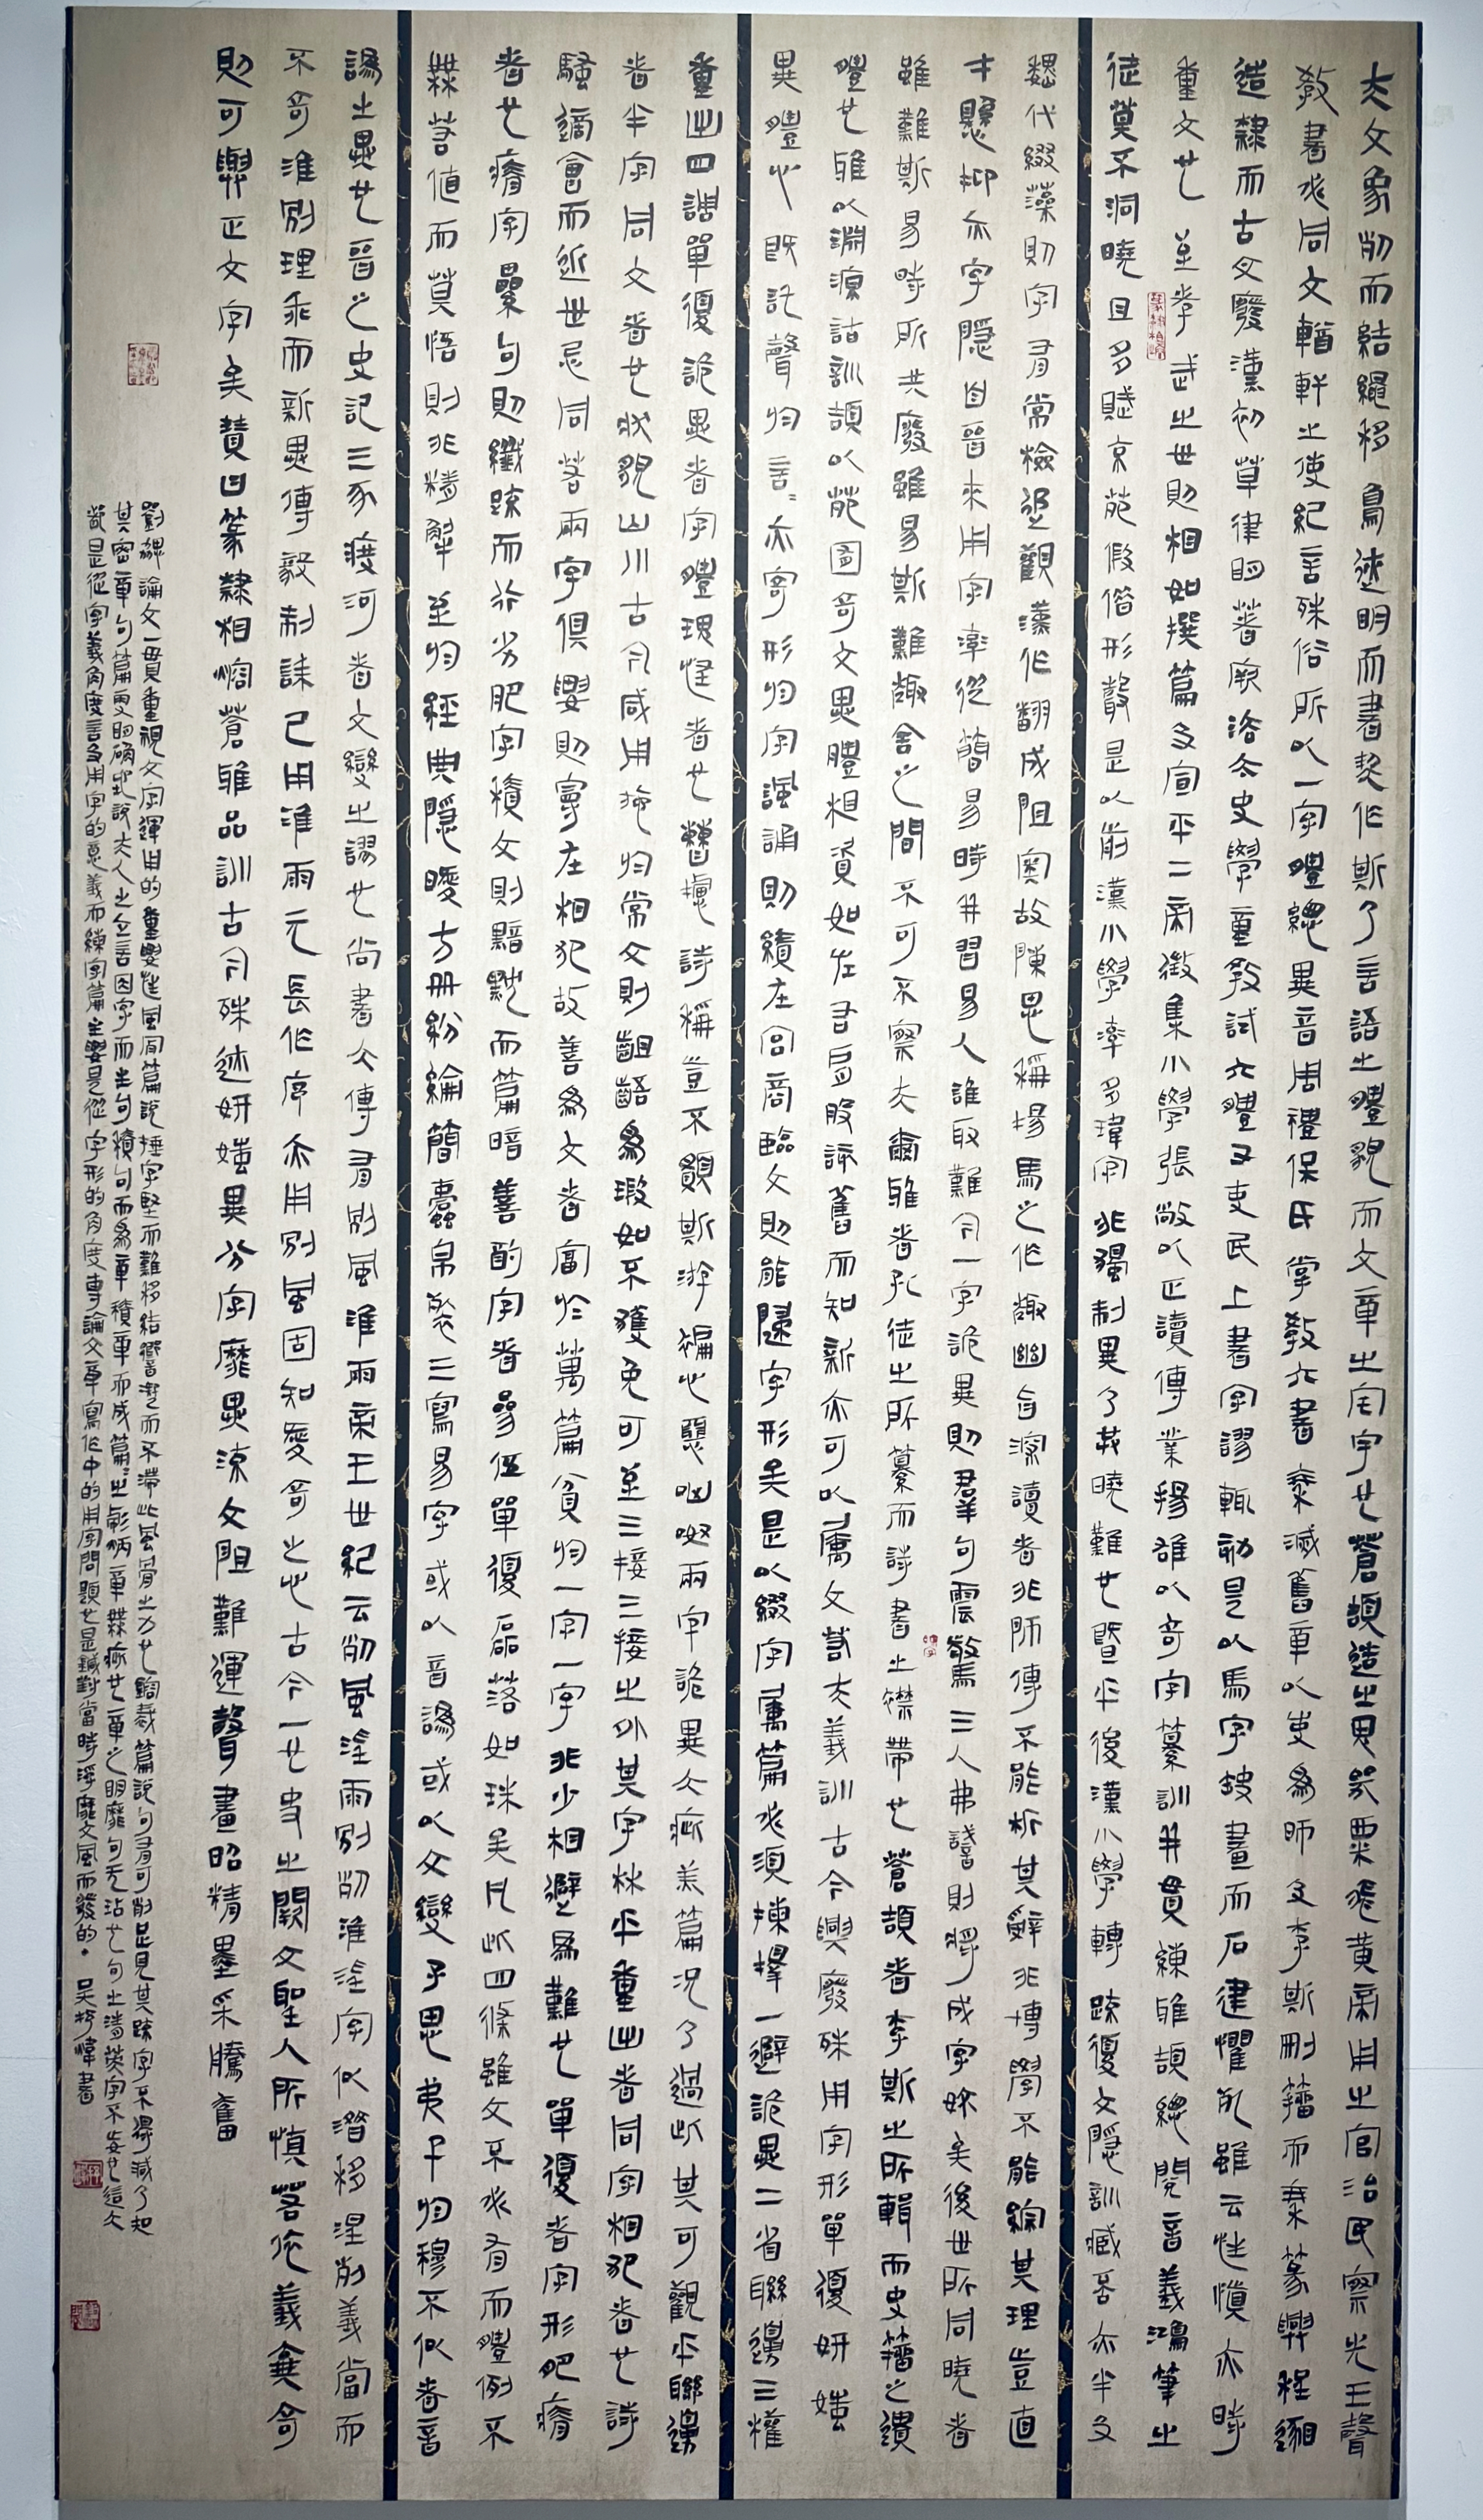 夫文象列而結繩移鳥迹明而書契作斯乃言語之體貌而文章之宅宇也蒼頡造之鬼哭粟飛黃帝用之官治民察先王聲
教書必同文輶軒之使紀言殊俗所以一字體總異音周禮保氏掌教六書秦滅舊章以吏為師及李斯刪籀而秦篆興程邈
造隸而古文廢漢初草律明著厥法太史學童教試六體又吏民上書字謬輒劾是以馬字缺畫而石建懼死雖云性慎亦時
重文也至孝武之世則相如撰篇及宣平二帝徵集小學張敞以正讀傳業揚雄以奇字纂訓並貫練雅頡總閱音義鴻筆之
徒莫不洞曉且多賦京苑假借形聲是以前漢小學率多瑋字非獨制異乃共曉難也暨乎後漢小學轉疏復文隱訓臧否亦半及
魏代綴藻則字有常檢追觀漢作翻成阻奧故陳思稱揚馬之作趣幽旨深讀者非師傳不能析其辭非博學不能綜其理豈直
才懸抑亦字隱自晉來用字率從簡易時並習易人誰取難今一字詭異則群句震驚三人弗識則將成字妖矣後世所同曉者
雖難斯易時所共廢雖易斯難趣舍之間不可不察夫爾雅者孔徒之所纂而詩書之襟帶也蒼頡者李斯之所輯而史籀之遺
體也雅以淵源詁訓頡以苑囿奇文異體相資如左右肩股該舊而知新亦可以屬文若夫義訓古今興廢殊用字形單復妍媸
異體心既託聲於言言亦寄形於字諷誦則績在宮商臨文則能歸字形矣是以綴字屬篇必須揀擇一避詭異二省聯邊三權
重出四調單復詭異者字體瑰怪者也曹攄詩稱豈不願斯遊褊心惡呐呶兩字詭異大疵美篇況乃過此其可觀乎聯邊
者半字同文者也狀貌山川古今咸用施於常文則齟齬為瑕如不獲免可至三接三接之外其字林乎重出者同字相犯者也詩
騷適會而近世忌同若兩字俱要則寧在相犯故善為文者富於萬篇貧於一字一字非少相避為難也單復者字形肥瘠
者也瘠字纍句則纖疏而行劣肥字積文則黯黕而篇暗善酌字者參伍單復磊落如珠矣凡此四條雖文不必有而體例不
無若值而莫悟則非精解至於經典隱曖方冊紛綸簡蠹帛裂三寫易字或以音譌或以文變子思弟子於穆不似者音
譌之異也晉之史記三豕渡河者文變之謬也尚書大傳有別風淮雨帝王世紀云列風淫雨別列淮淫字似潛移淫列義當而
不奇淮別理乖而新異傅毅制誄已用淮雨元長作序亦用別風固知愛奇之心古今一也史之闕文聖人所慎若依義棄奇
則可與正文字矣贊曰篆隸相熔蒼雅品訓古今殊迹妍媸異分字靡異流文阻難運聲畫昭精墨采騰奮
劉勰論文一貫重視文字運用的重要性風骨篇說捶字堅而難移結響凝而不滯此風骨之力也鎔裁篇說句有可削足見其疏字不得減乃知
其密章句篇更明確地說夫人之立言因字而生句積句而為章積章而成篇篇之彪炳章無疵也章之明靡句無玷也句之清英字不妄也這大
概是從字義角度言及用字的意義而練字篇主要是從字形的角度專論文章寫作中的用字問題也是針對當時浮靡文風而發的。吳書